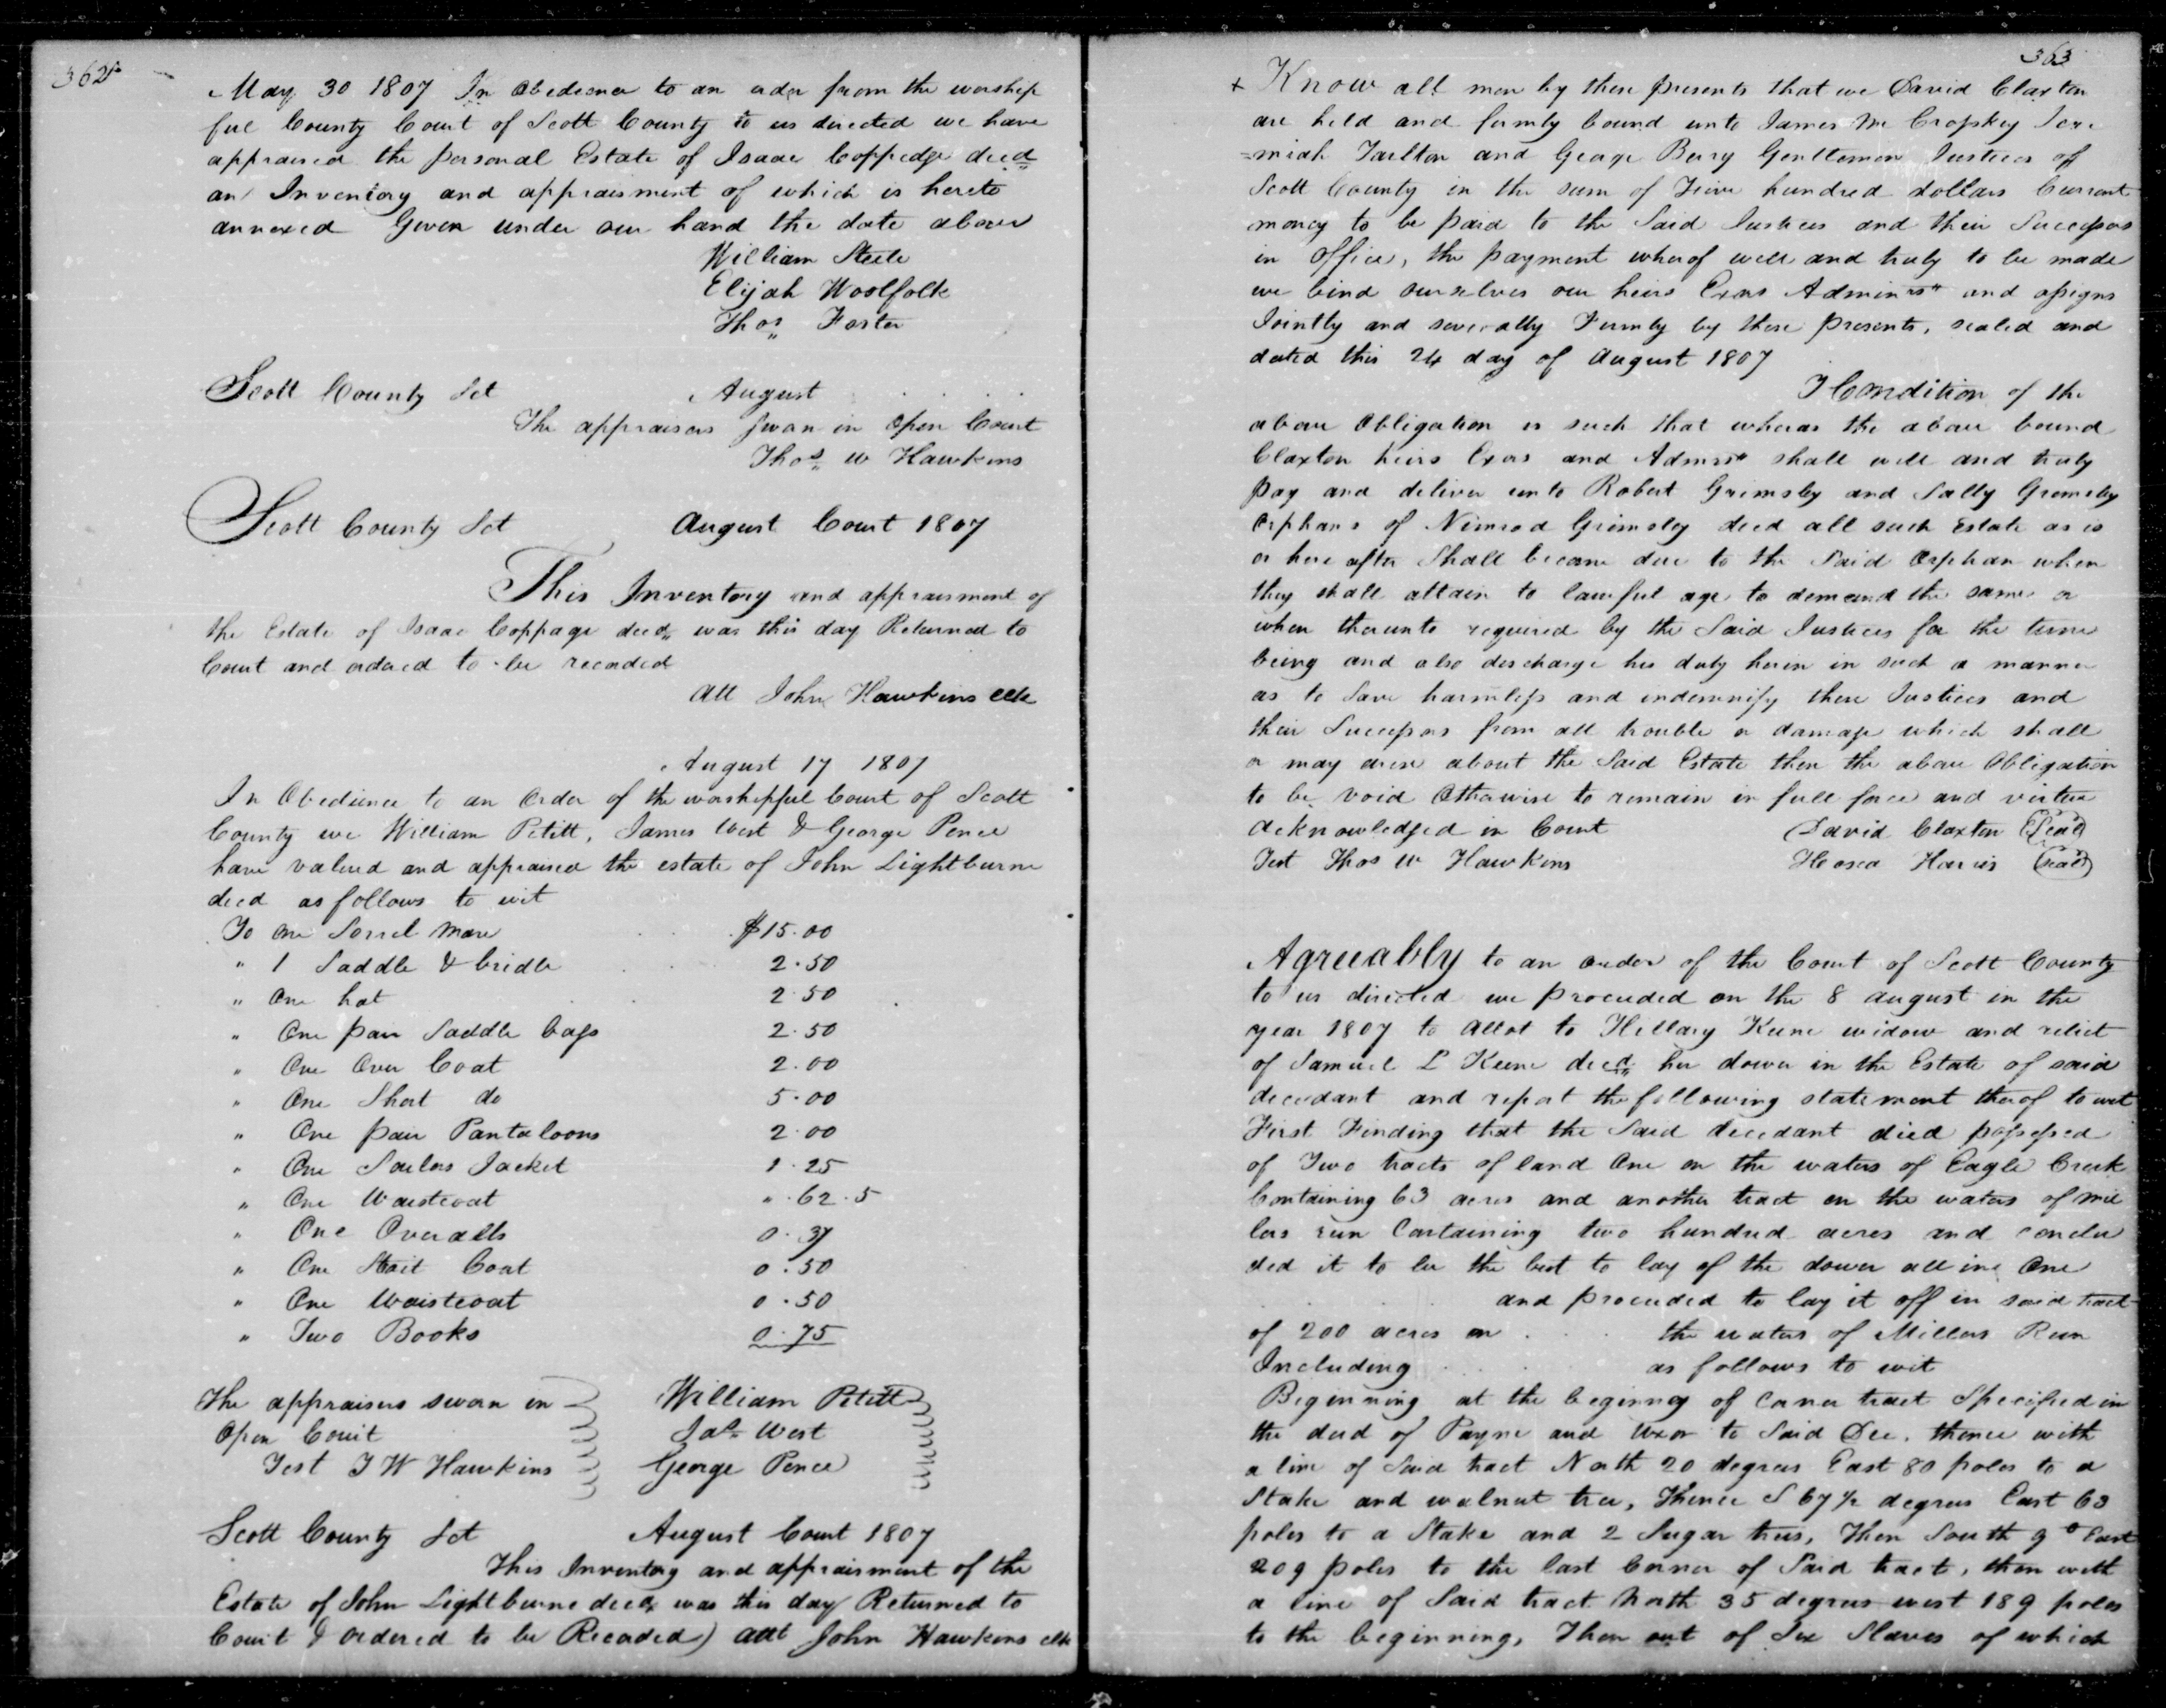 362
May 30 1807 In Obedience to an order from the worship
ful County Court of Scott County to us directed we have
appraised the personal Estate of Isaac Coppedge decd
an Inventory and appraisment of which is hereto
annexed Given under our hand the date above
William Steele
Elijah Woolfolk
Thos Foster
Scott County Sct August
The appraisers Sworn in Open Court
Thos W Hawkins
Scott County Sct August Court 1807
This Inventory and appraisment of
the Estate of Isaac Coppage decd was this day Returned to
Court and ordered to be recorded
Att John Hawkins clk
August 17 1807
In Obedience to an Order of the worshipful Court of Scott
County we William Petitt, James West & George Pence
have valued and appraised the estate of John Lightburne
decd as follows to wit
To One Sorrel Mare $15.00
" 1 Saddle & bridle 2.50
" One hat 2.50
" One pair Saddle bags 2.50
" One Over Coat 2.00
" One Short do 5.00
" One pair Pantaloons 2.00
" One Sailors Jacket 1.25
" One Waistcoat ".62.5
" One Overalls 0.37
" One Strait Coat 0.50
" One Waistcoat 0.50
" Two Books 0.75
The appraisers sworn in William Petitt
Open Court Jas West
Test T W Hawkins George Pence
Scott County Sct August Court 1807
This Inventory and appraisment of the
Estate of John Lightburne decd was this day Returned to
Court & ordered to be Recorded) att John Hawkins clk
363
+ Know all men by these presents that we David Claxton
are held and firmly bound unto James Mc Croskey Jere
=miah Tarlton and George Berry Gentlemen Justices of
Scott County in the sum of Five hundred dollars Current
money to be paid to the Said Justices and their Successors
in Office, the payment wherof well and truly to be made
we bind ourselves our heirs Exors Adminrs and assigns
Jointly and severally Firmly by these presents, sealed and
dated this 24 day of August 1807
T Condition of the
above Obligation is such that wheras the above bound
Claxton heirs Exors and Admrs shall well and truly
pay and deliver unto Robert Grimsley and Sally Grimsley
Orphans of Nimrod Grimsley decd all such Estate as is
or here after Shall become due to the Said Orphan when
they shall attain to lawful age to demand the same or
when therunto required by the Said Justices for the time
being and also discharge his duty herin in such a manner
as to Save harmless and indemnify these Justices and
their Successors from all trouble or damage which shall
or may arise about the Said Estate then the above Obligation
to be void Otherwise to remain in full force and virtue
Acknowledged in Court David Claxton (Seal)
Test Thos W Hawkins Hosea Harris (Seal)
Agreeably to an order of the Court of Scott County
to us directed we proceeded on the 8 august in the
year 1807 to Allot to Hillary Keene widow and relict
of Samuel L Keene decd her dower in the Estate of said
decedant and report the following statement therof to wit
First Finding that the Said decedant died possessed
of Two tracts of land One on the waters of Eagle Creek
Containing 63 acres and another tract on the waters of Mil
lers run Containing two hundred acres and conclu
ded it to be the best to lay of the dower all in One
and proceeded to lay it off in said tract
of 200 acres on the waters of Millers Run
Including as follows to wit
Beginning at the beginng of Corner tract Specified in
the deed of Payne and Uxor to Said Dec. thence with
a line of Said tract North 20 degrees East 80 poles to a
Stake and walnut tree, Thence S 67 1/2 degrees East 63
poles to a Stake and 2 Sugar trees, Then South 9° East
209 poles to the last Corner of Said tract, then with
a line of Said tract North 35 degrees west 189 poles
to the beginning, Then out of Six Slaves of which